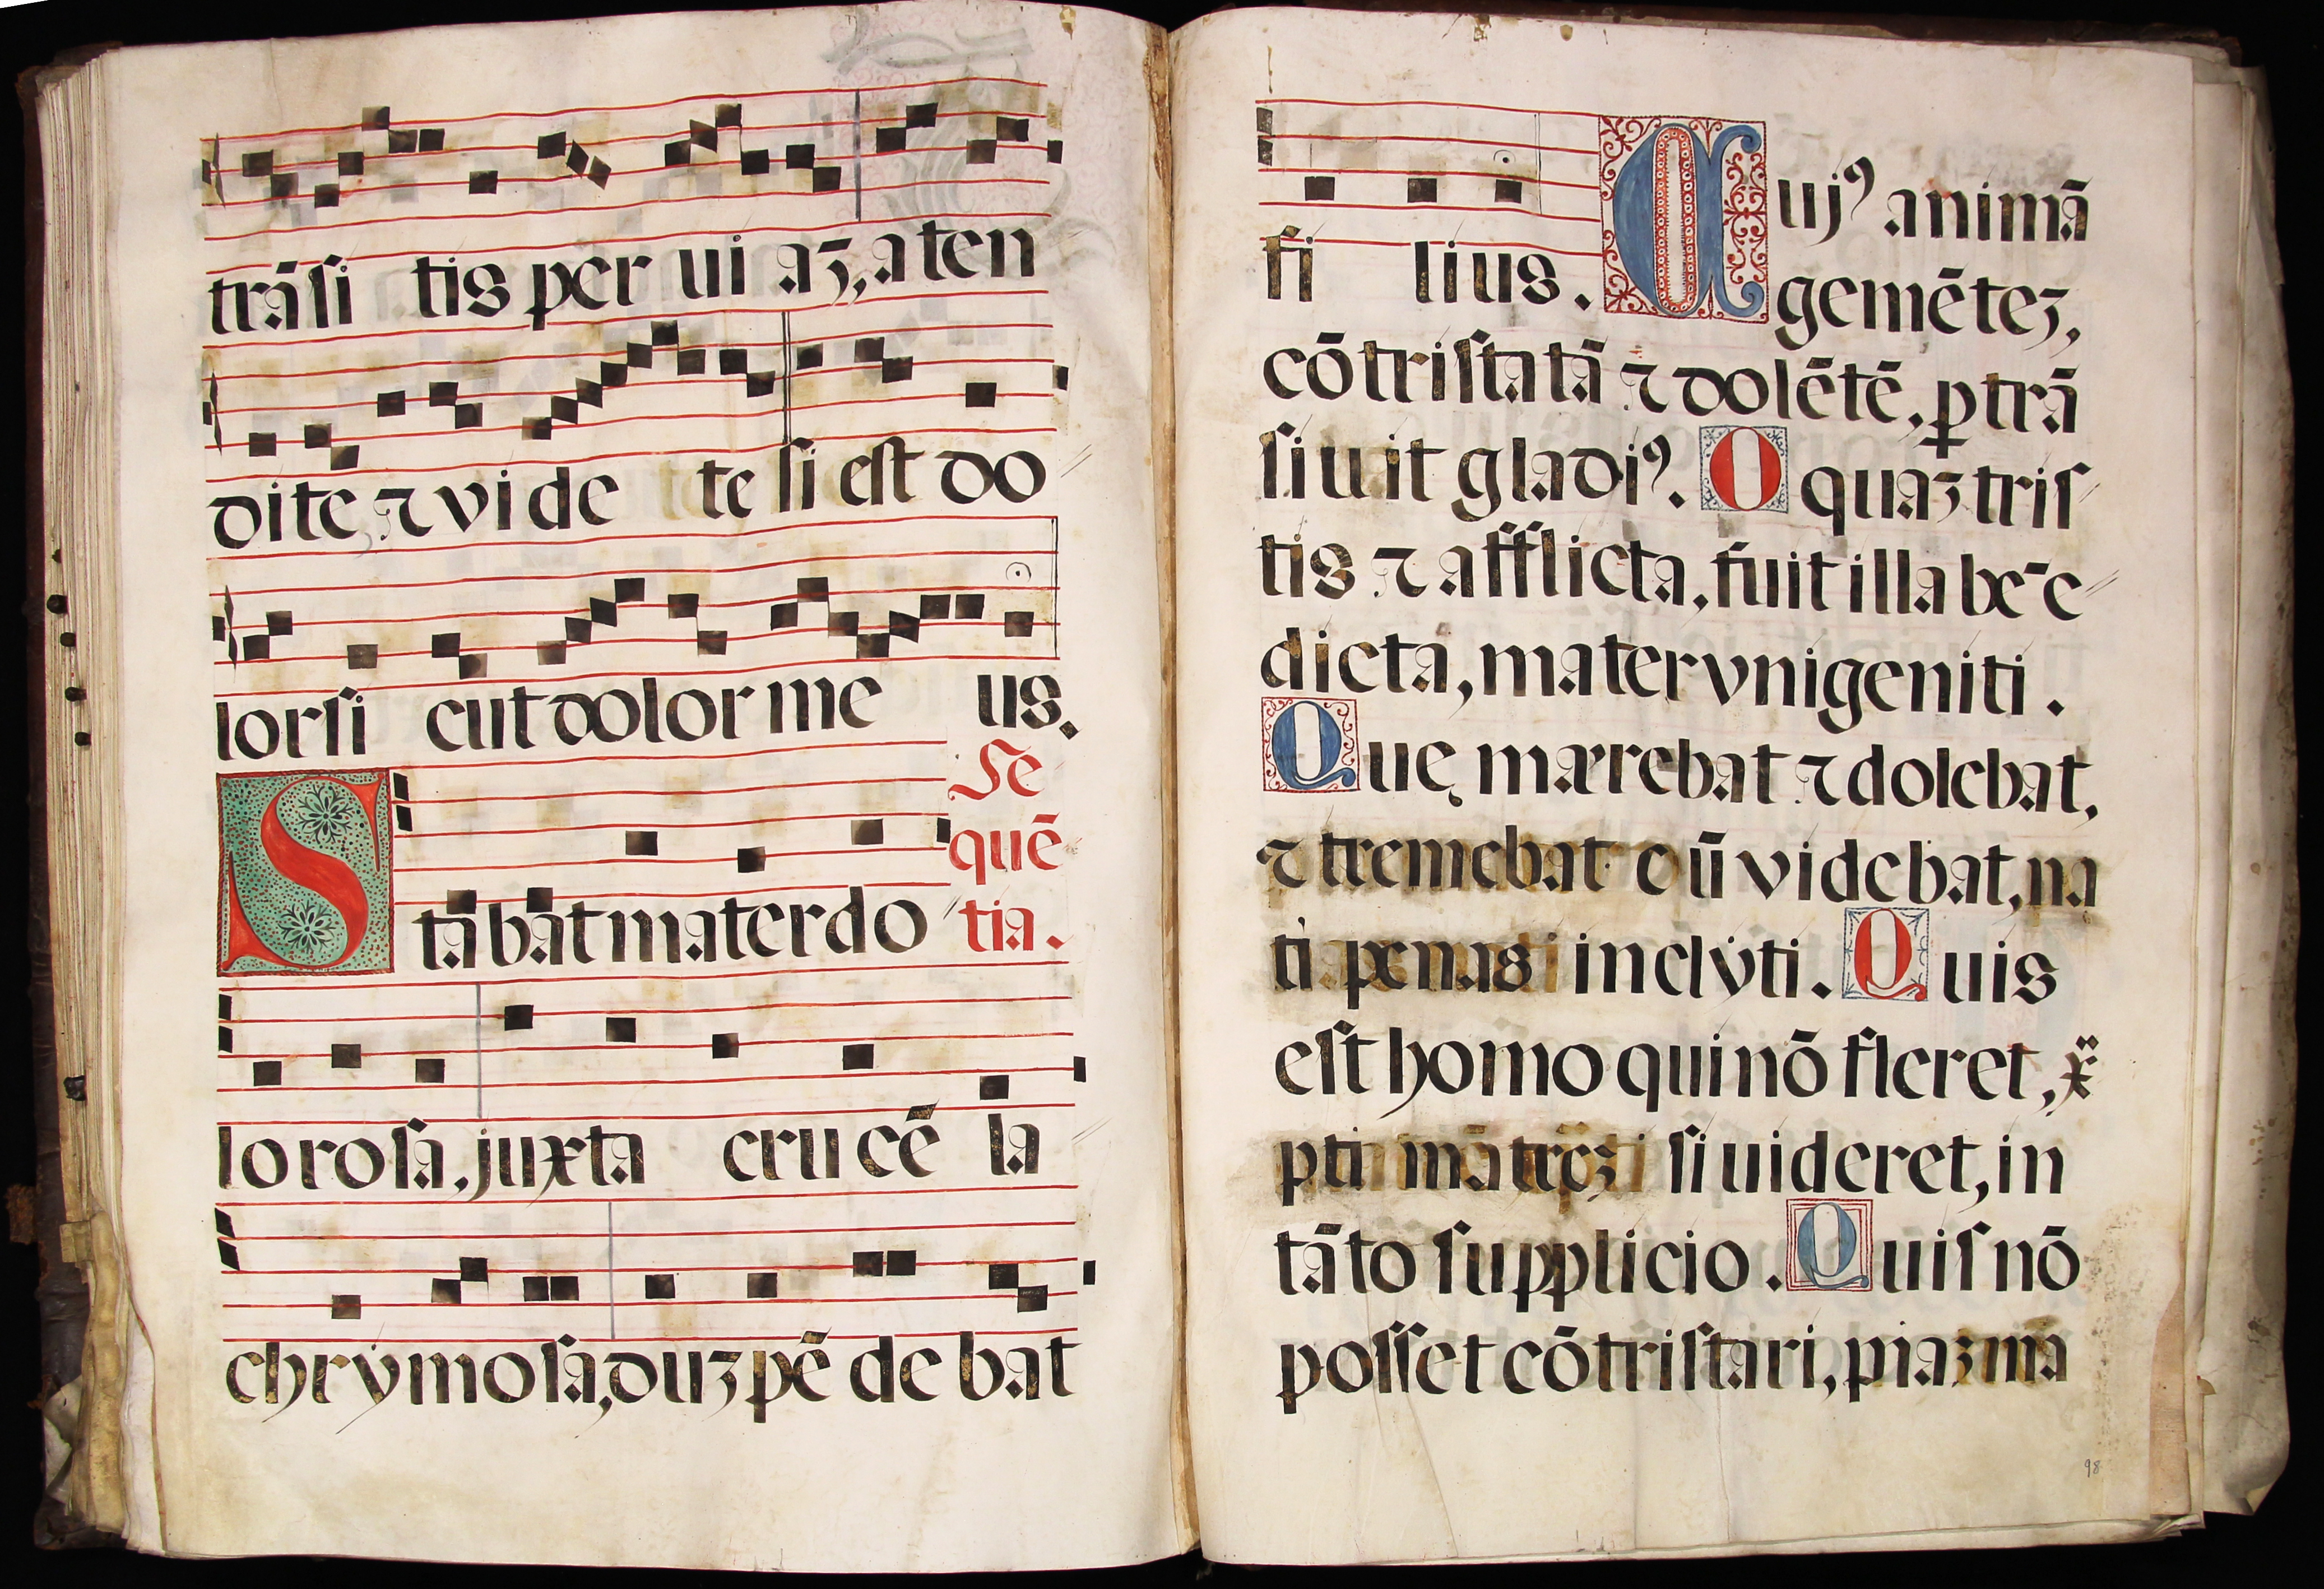 trāsi tis per ui aʒ, a ten
dite, ⁊ vi de te si est do
lor si cut dolor me us.
Se
quē
tia.
Sta bat mater do
lo ro sa, juxta cru cē la
chrymosa, duʒ pē de bat
fi lius. Cujꝰ animā
gemēteʒ,
cōtristatā ⁊ dolētē, ꝑtrā
siuit gladiꝰ. O quaʒ tris
tis ⁊ afflicta, fuit illa bēe
dicta, mater vnigeniti.
Quę mærebat ⁊ dolebat,
⁊ tremebat cū videbat, na
ti penas inclyti. Quis
est homo qui nō fleret, x̄
pti matreʒ si uideret, in
tāto supplicio. Quis nō
posset cōtristari, piaʒ ma
98